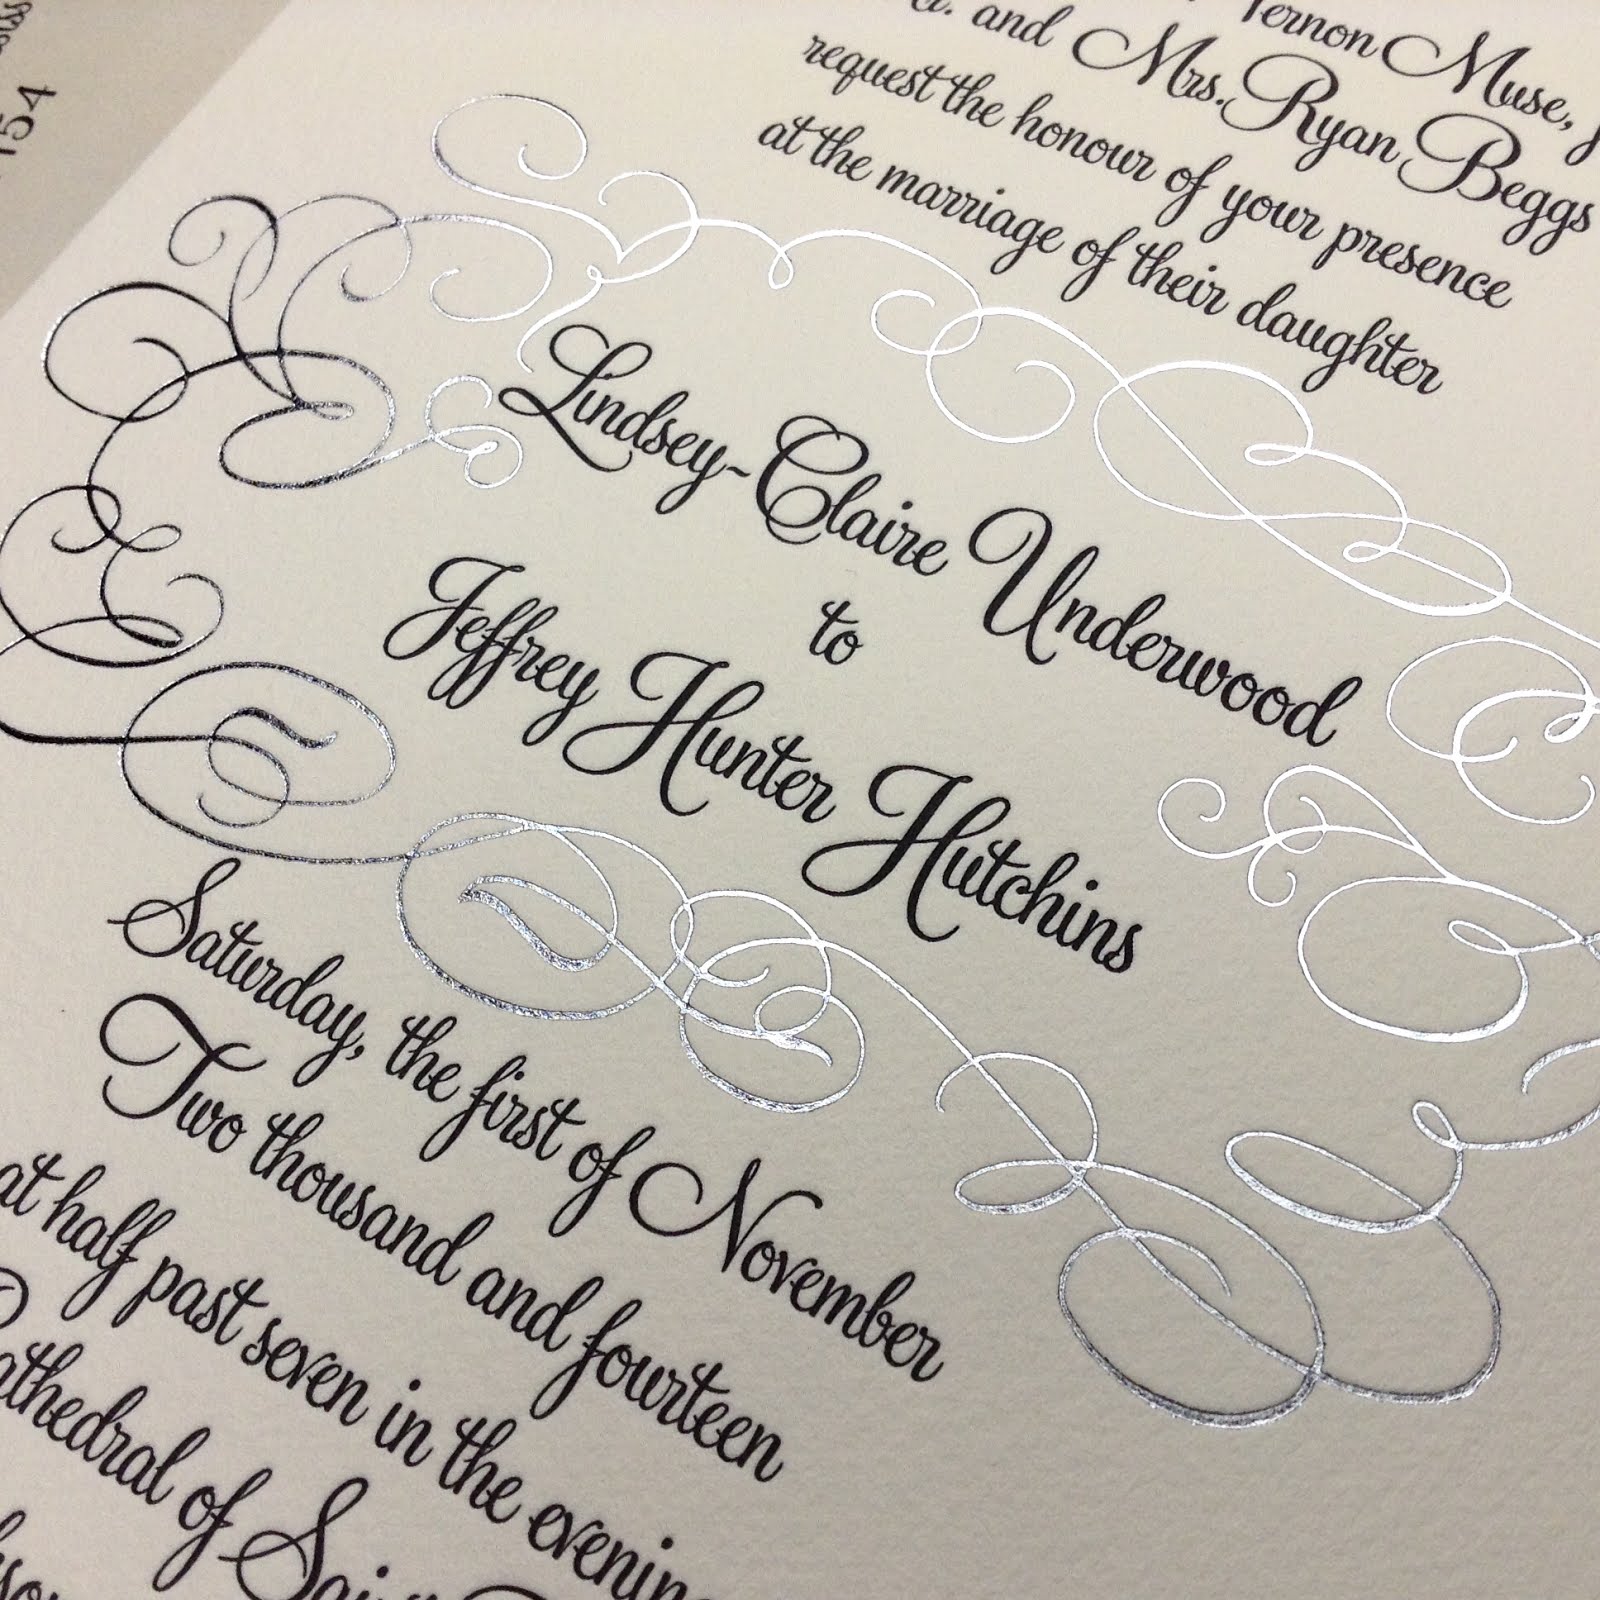 154
Vernon Muse,
and Mrs. Ryan Beggs
request the honour of your presence
at the marriage of their daughter
Lindsey-Claire Underwood
to
Jeffrey Hunter Hutchins
Saturday, the first of November
Two thousand and fourteen
at half past seven in the evening
Cathedral of